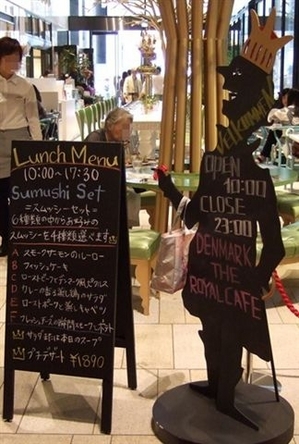 Lunch Menu
10:00～17:30
Sumushi Set
=スムッシーセット=
6種類の中からお好みの
スムッシーを4種類選べます
A スモークサーモンのルーロー
B フィッシュケーキ
C ローストビーフ
D
E ローストポークと蒸しキャベツ
F フレッシュチーズの
サラダ又は本日のスープ
プチデザート ¥1890
Velkommen!
OPEN
10:00
CLOSE
23:00
DENMARK
THE
ROYAL CAFE